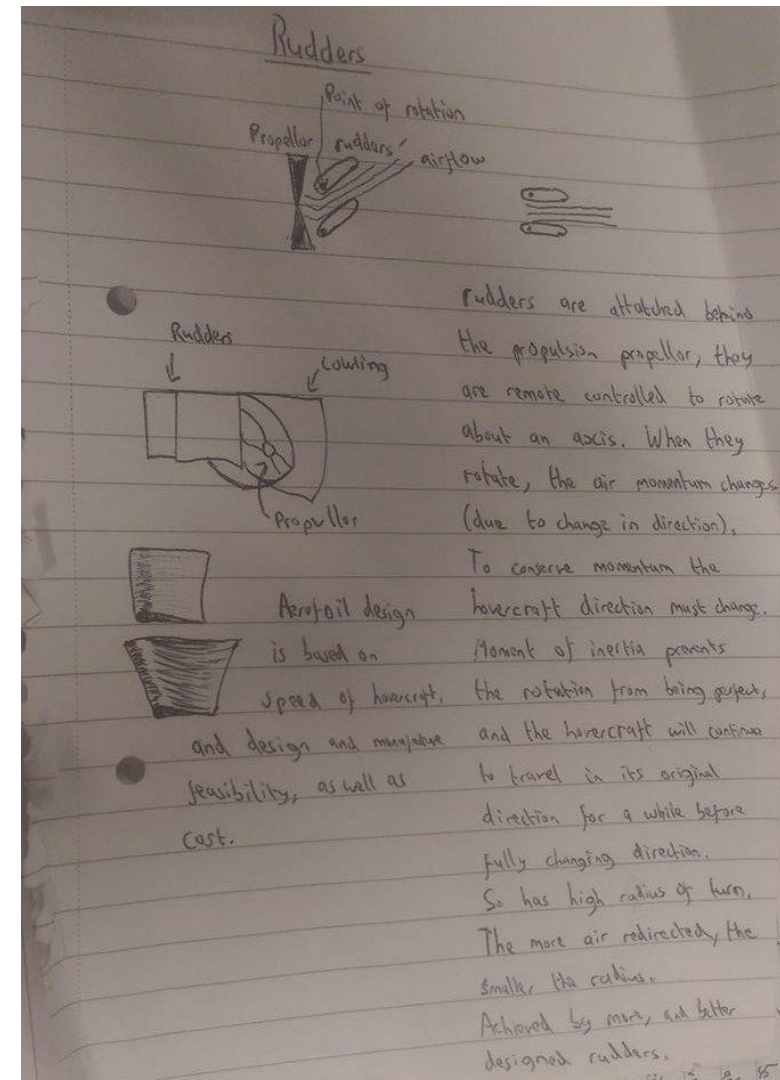 Rudders
Point of rotation
Propellor
rudders
airflow
Rudders
Cowling
Propullor
Aerofoil design
is based on
speed of hovercraft,
and design and manufature
feasibility, as well as
cost.
rudders are attatched behind
the propulsion propellor, they
are remote controlled to rotate
about an axis. When they
rotate, the air momentum changes
(due to change in direction),
To conserve momentum the
hovercraft direction must change.
Moment of inertia prevents
the rotation from being perfect,
and the hovercraft will continue
to travel in its original
direction for a while before
fully changing direction.
So has high radius of turn.
The more air redirected, the
smaller the radius.
Achieved by more, and better
designed rudders.